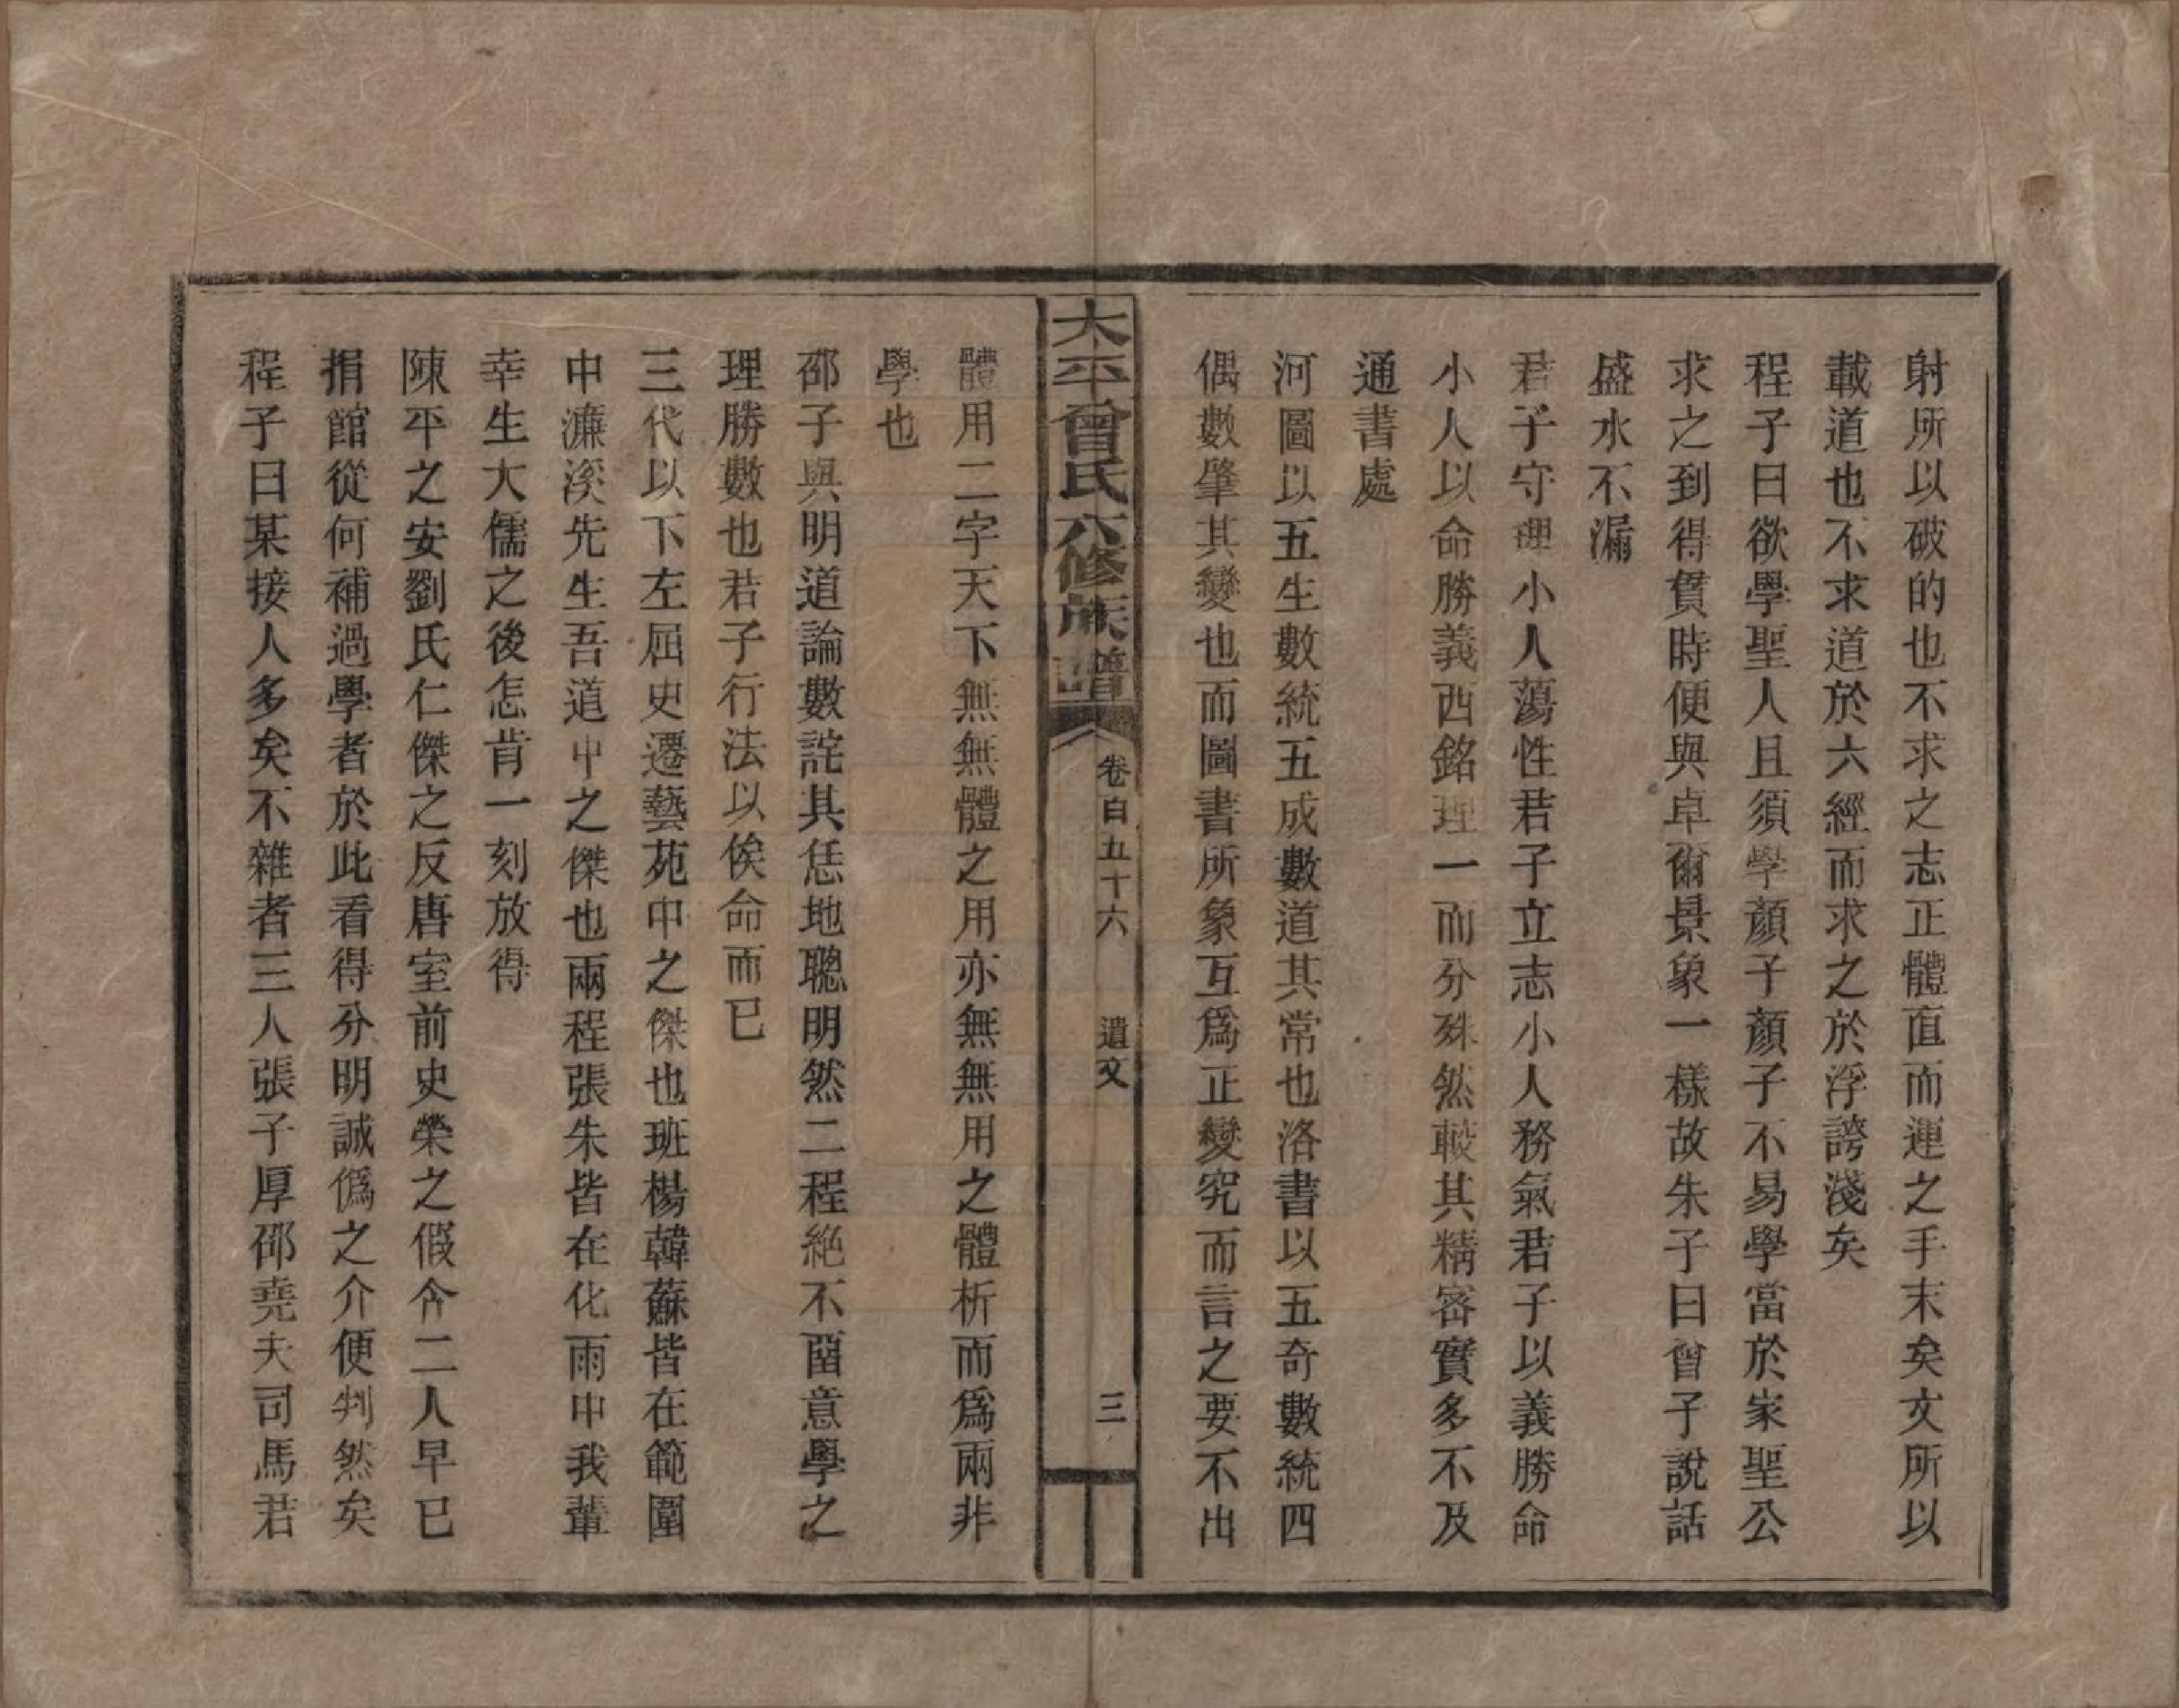 射所以破的也不求之志正體直而運之手末矣文所以
載道也不求道於六經而求之於浮誇淺矣
程子曰欲學聖人且須學顏子顏子不易學當於家聖公
求之到得貫時便與卓爾景象一樣故朱子曰曾子說話
盛水不漏
君子守理小人蕩性君子立志小人務氣君子以義勝命
小人以命勝義西銘理一而分殊然較其精密實多不及
通書處
河圖以五生數統五成數道其常也洛書以五奇數統四
偶數肇其變也而圖書所象互爲正變究而言之要不出
太平曾氏六修族譜
卷百五十六
遺文
三
體用二字天下無無體之用亦無無用之體析而爲兩非
學也
邵子與明道論數詫其恁地聰明然二程絶不畱意學之
理勝數也君子行法以俟命而已
三代以下左屈史遷藝苑中之傑也班楊韓蘇皆在範圍
中濂溪先生吾道中之傑也兩程張朱皆在化雨中我輩
幸生大儒之後怎肯一刻放得
陳平之安劉氏仁傑之反唐室前史榮之假令二人早已
捐館從何補過學者於此看得分明誠僞之介便判然矣
程子曰某接人多矣不雜者三人張子厚邵堯夫司馬君